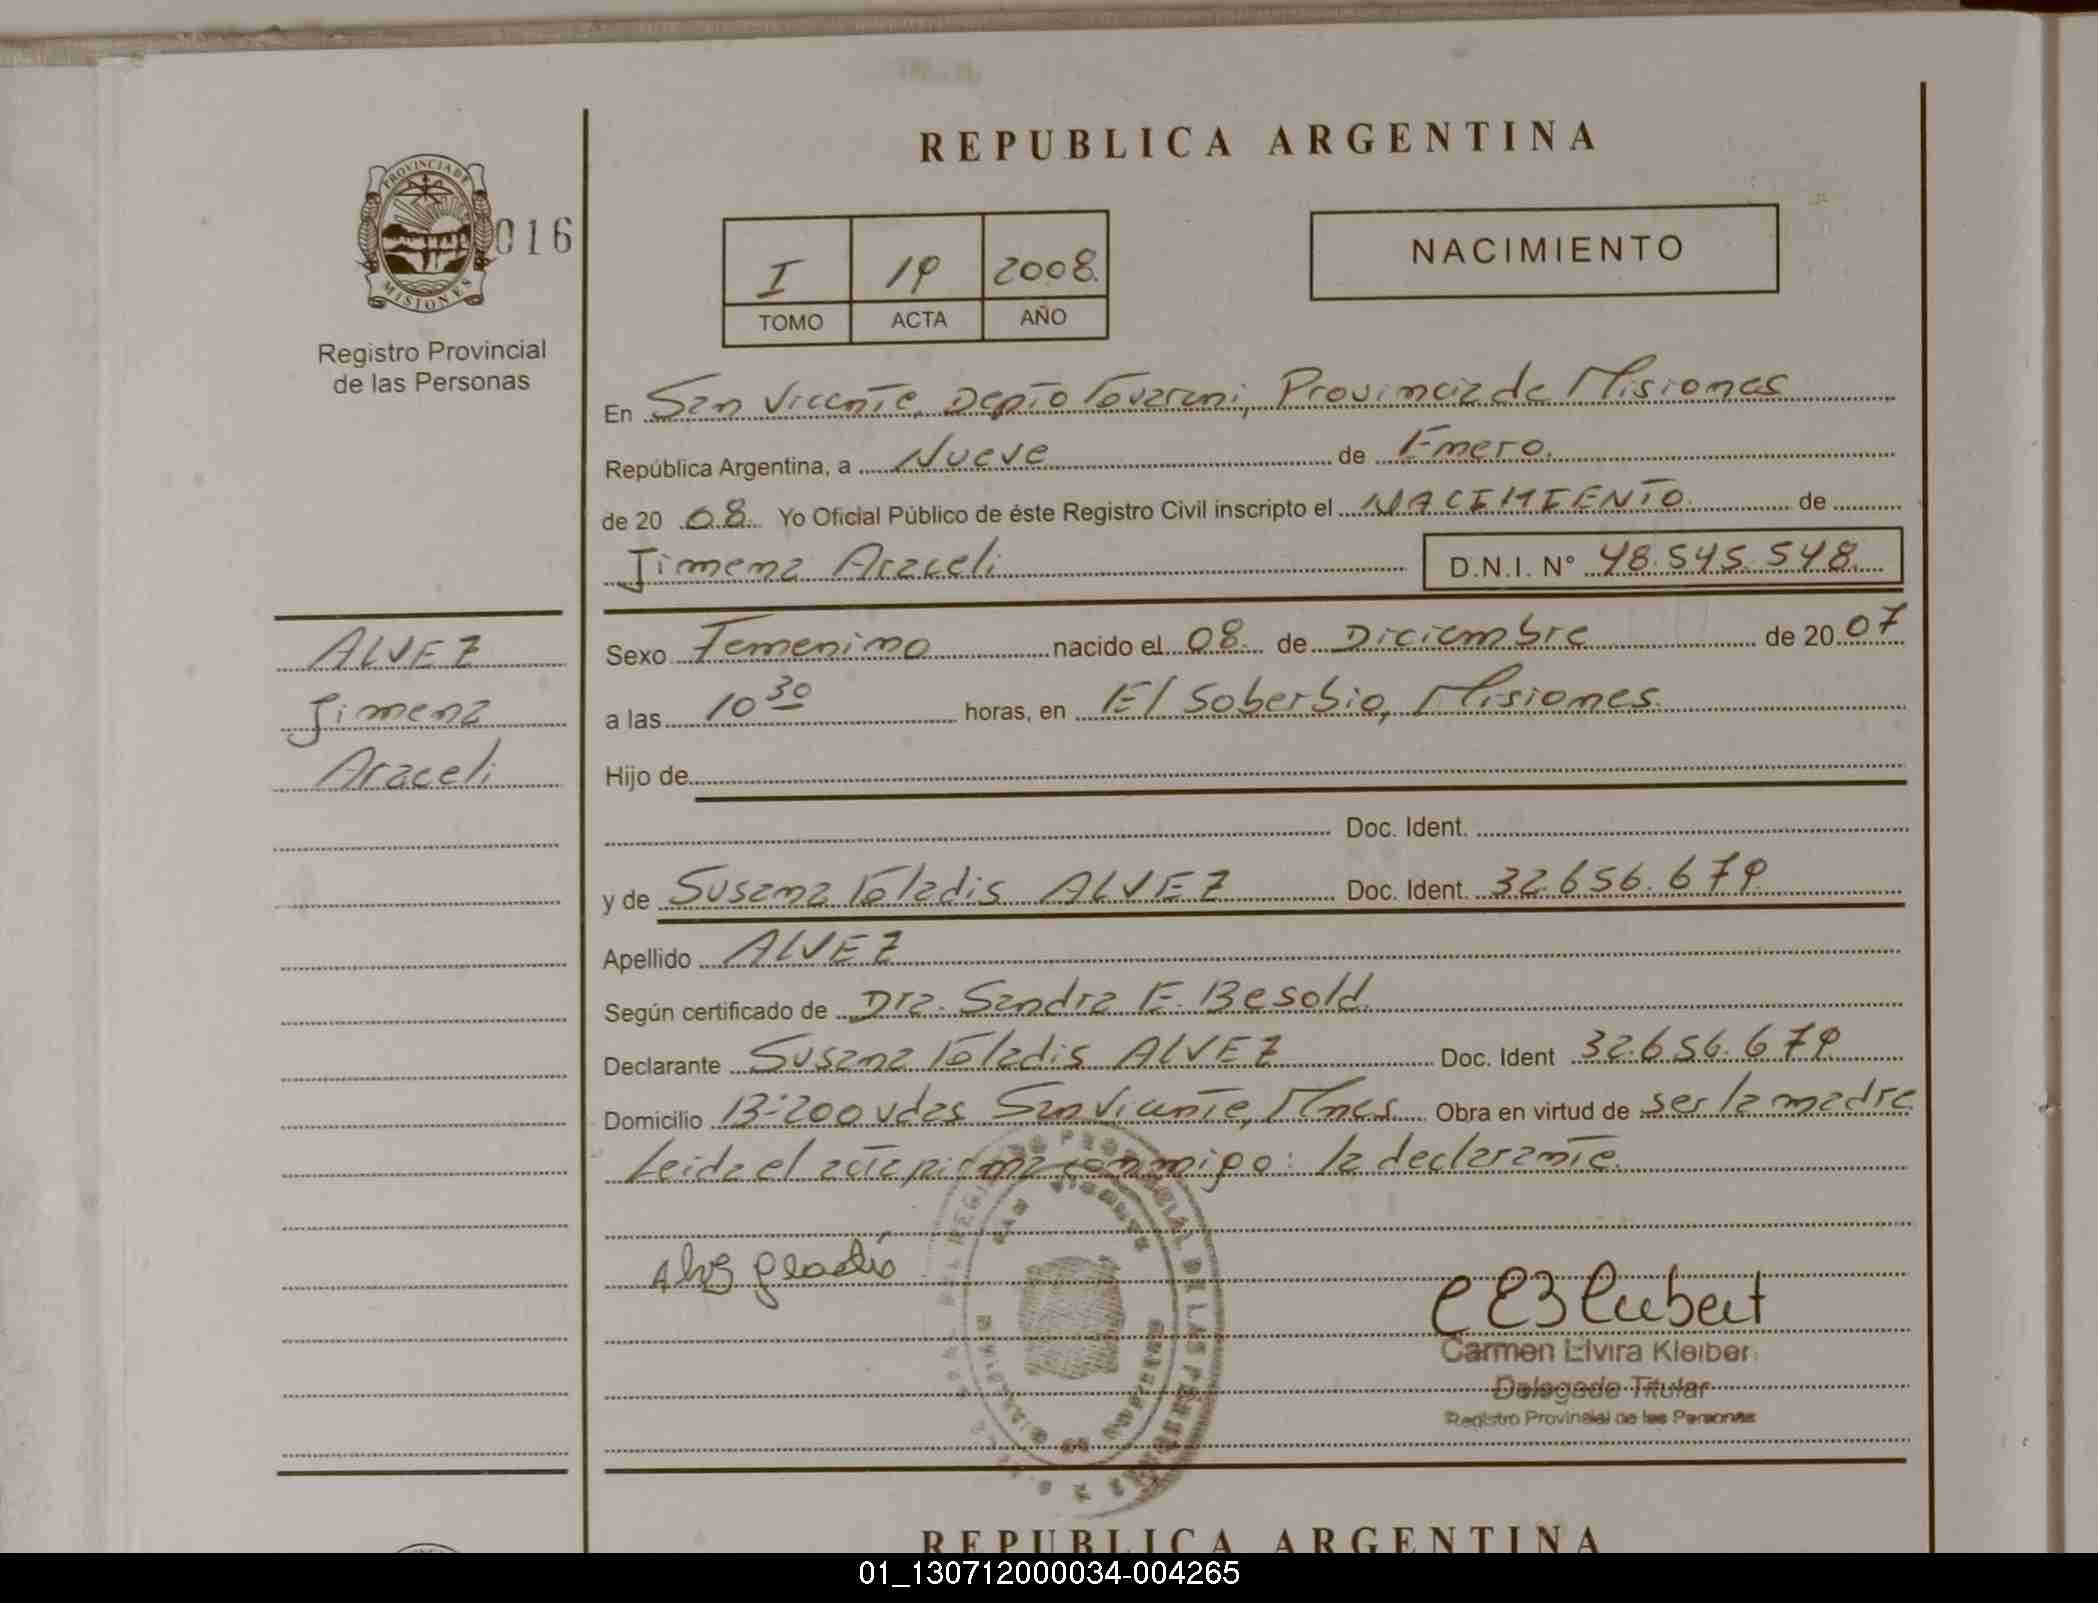 REPUBLICA ARGENTINA
PROVINCIA DE
MISIONES
016
Registro Provincial
de las Personas
I 19 2008.
TOMO ACTA AÑO
NACIMIENTO
En San Vicente, Depto Guarani, Provincia de Misiones
República Argentina, a Nueve de Enero.
de 20 08. Yo Oficial Público de éste Registro Civil inscripto el NACIMIENTO de
Jimena Araceli D.N.I. N° 48.545.548.
ALVEZ
Jimena
Araceli
Sexo Femenino nacido el 08. de Diciembre de 20 07
a las 10 30 horas, en El Soberbio, Misiones.
Hijo de
Doc. Ident.
y de Susana Gladis ALVEZ Doc. Ident. 32.656.679
Apellido ALVEZ
Según certificado de Dra. Sandra E. Besold.
Declarante Susana Gladis ALVEZ Doc. Ident 32.656.679
Domicilio B°:200 vdas San Vicente, Mnes. Obra en virtud de ser la madre
Leida el acta firma conmigo: la declarante.
DE LAS
Carmen Elvira Kleiber
Delegada Titular
Registro Provincial de las Personas
REPUBLICA ARGENTINA
01_130712000034-004265